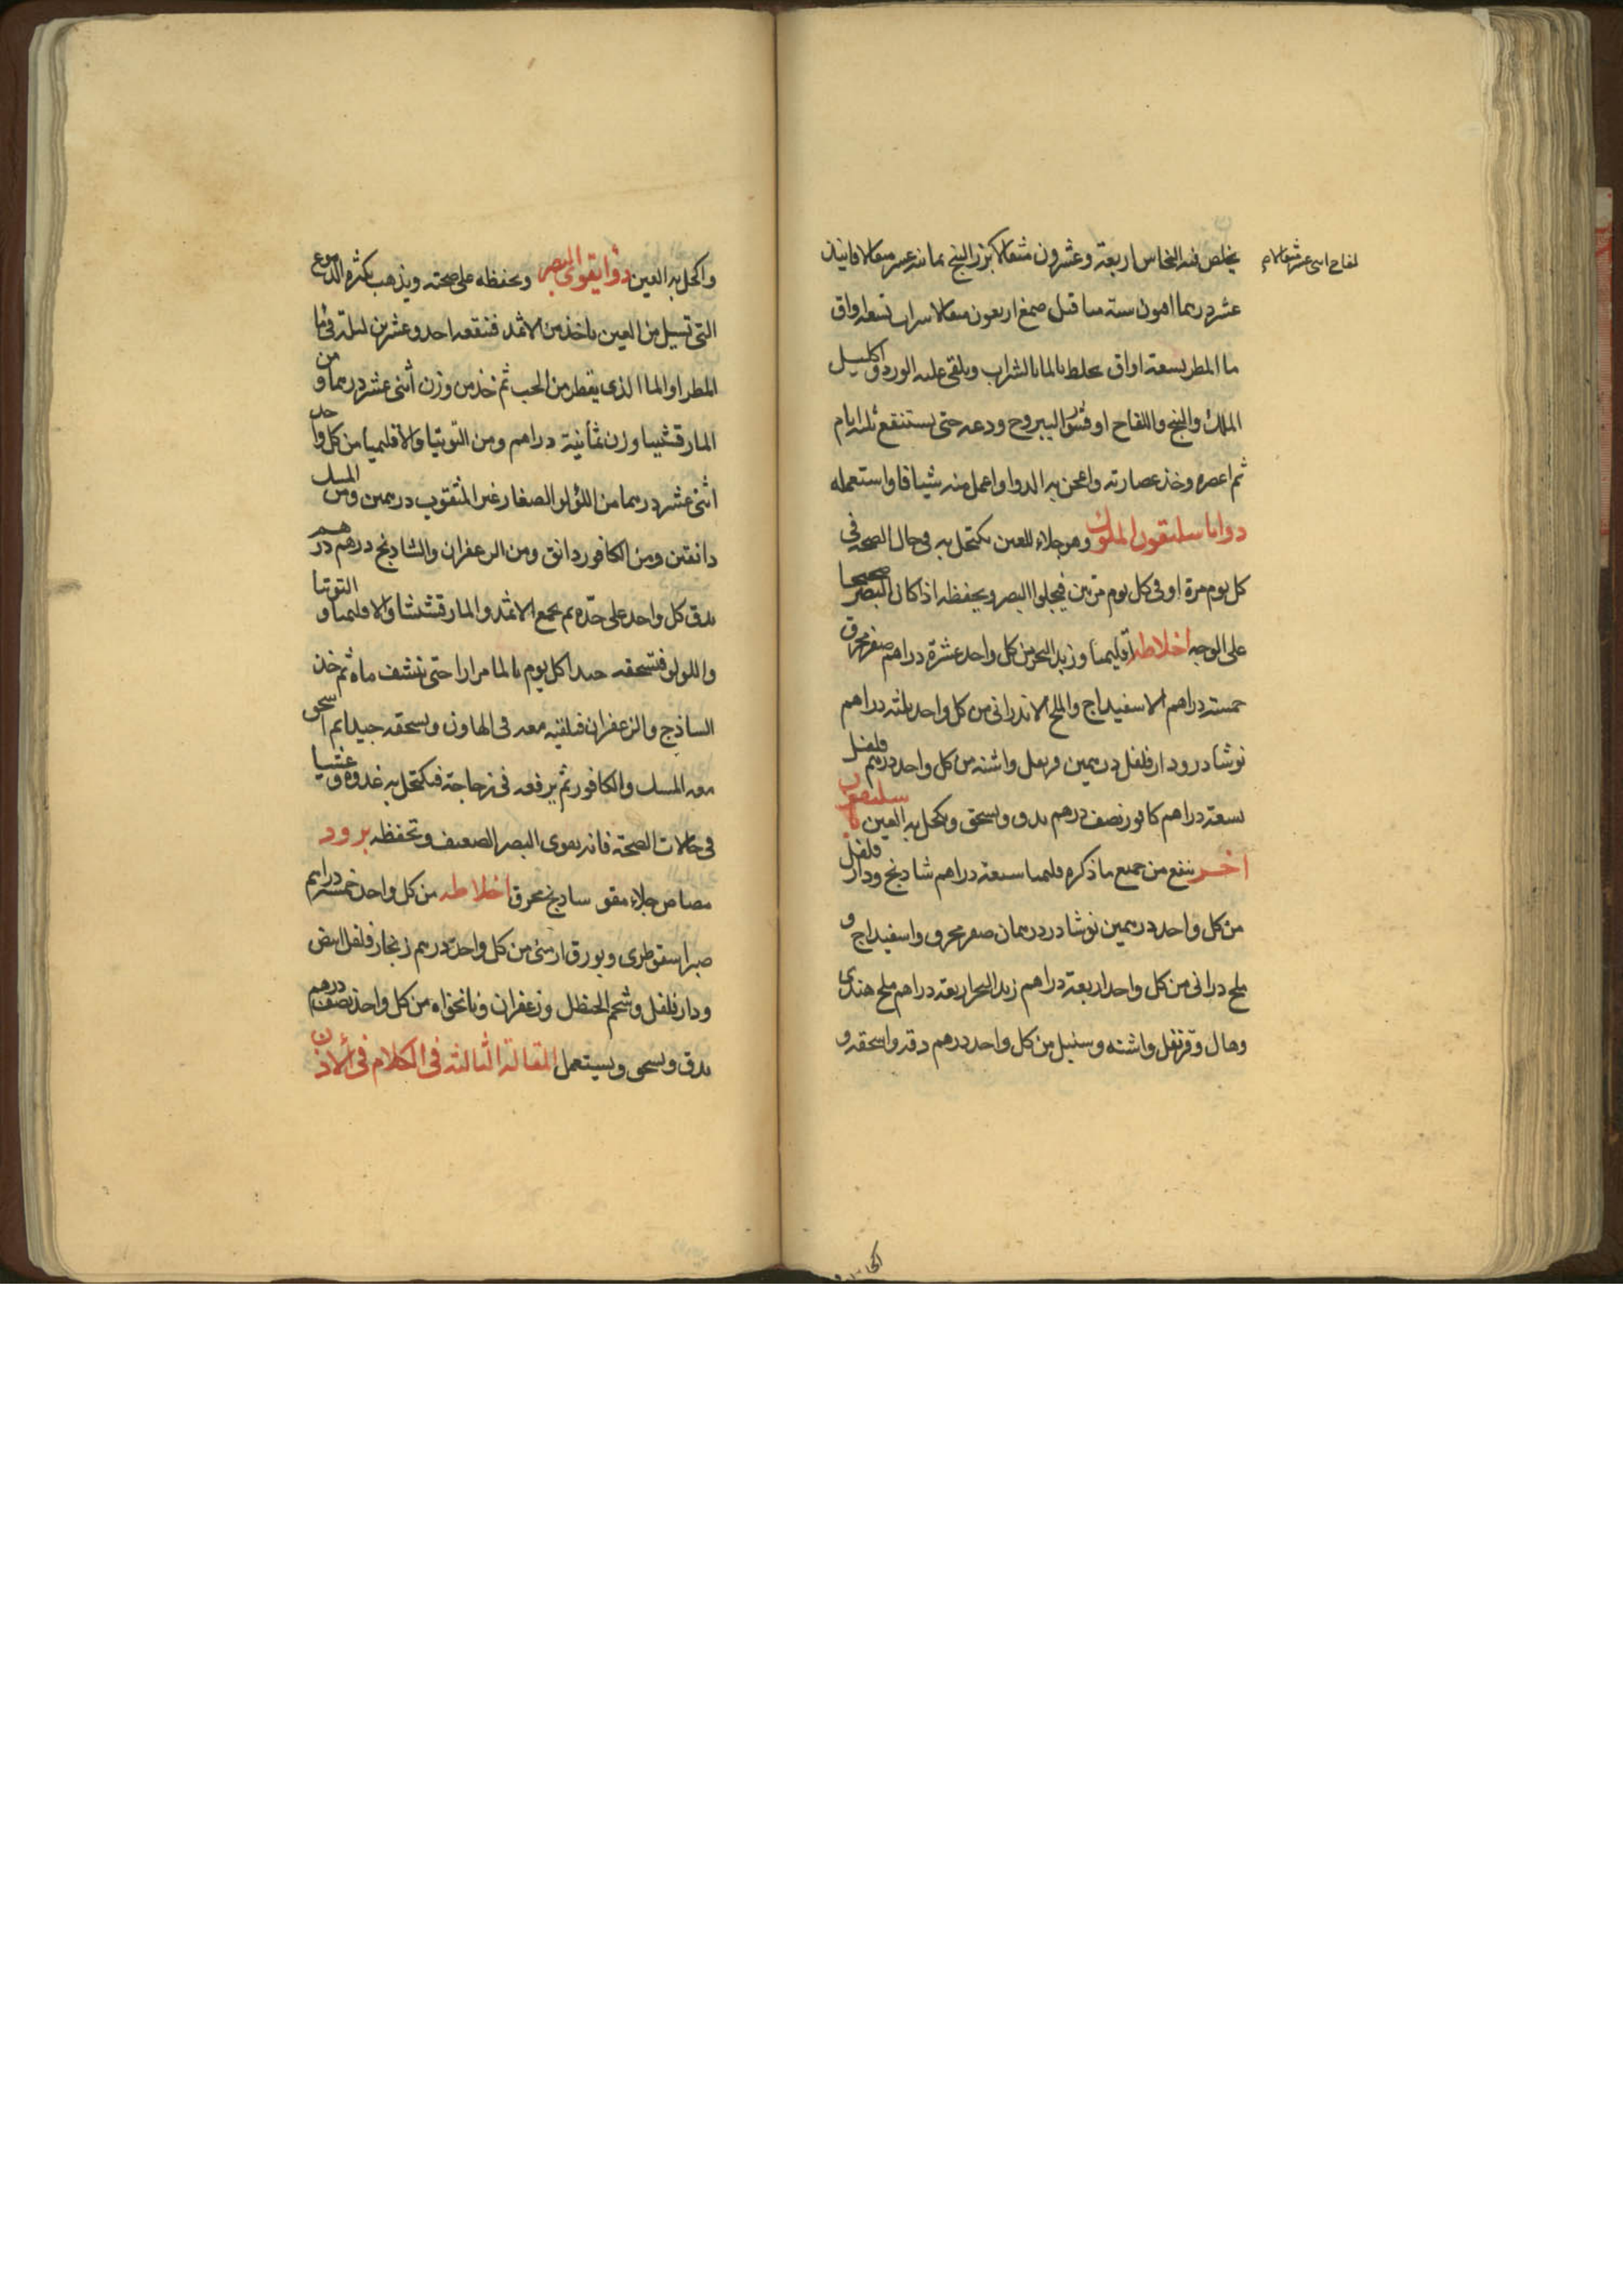 يخلص فيه النحاس اربعة وعشرون مثقالا بزر البنج ثمانيه عشر مثقالا فانيذ
لفاح اثنى عشر مثقالا
عشر درهما افيون سته مثاقيل صمغ اربعون مثقالا شراب تسعة اواق
ما المطر تسعة اواق يخلط بالما بالشراب ويلقى عليه الورد واكليل
الملك والبنج واللفاح او قشور اليبروح ودعه حتى يستنقع ثلثه ايام
ثم اعصره وخذ عصارته واعجن به الدوا واعمل منه شيافا واستعمله
دوا باسليقون الملوك وهو جلاء للعين يكتحل به فى حال الصحه فى
كل يوم مرة او فى كل يوم مرتين فيجلوا البصر ويحفظه اذا كان البصر صحيحا
على الوجه اخلاطه اقليميا وزبد البحر من كل واحد عشرة دراهم صفر محرق
خمسة دراهم الاسفيداج والملح الاندرانى من كل واحد ثلثه دراهم
نوشادر ودارفلفل درهمين قرنفل واشنه من كل واحد درهم فلفل
سبعة دراهم كافور نصف درهم يدق ويسحق ويكحل به العين باسليقون
اخر ينفع من جميع ما ذكره قليميا سبعة دراهم شادنج ودار فلفل
من كل واحد درهمين نوشادر درهمان صفر محرق واسفيداج و
ملح درانى من كل واحد اربعة دراهم زبد البحر اربعة دراهم ملح هندى
وهال وقرنفل واشنه وسنبل من كل واحد درهم دقه واسحقه و
واكحل به العين دوا يقوى البصر ويحفظه على صحته ويذهب بكثره الدموع
التى تسيل من العين ياخذ من الاثمد فتنقعه احد وعشرين ليلة فى ما
المطر او الما الذى يقطر من الحب ثم خذ من وزن اثنى عشر درهما ومن
المارقشيبا وزن ثمانية دراهم ومن التوتيا والاقليميا من كل واحد
اثنى عشر درهما من اللؤلو الصغار غير المثقوب درهمين ومن المسك
دانقين ومن الكافور دانق ومن الزعفران والشادنج درهم درهم
يدق كل واحد على حده ثم يجمع الاثمد والمارقشيثا والاقليميا والتوتيا
واللولو فتسحقه جيدا كل يوم بالما مرارا حتى ينشف ماه ثم خذ
الساذج والزعفران فتلقيه معه فى الهاون ويسحقه جيدا ثم اسحق
معه المسك والكافور ثم يرفعه فى زجاجة فيكتحل به غدوه وعشيا
فى حالات الصحة فانه يقوى البصر الضعيف وتحفظه برود
مصاص جلاء مقو سادنج محرق اخلاطه من كل واحد خمسة دراهم
صبر اسقوطرى وبورق ارمنى من كل واحد درهم زنجار فلفل ابيض
ودارفلفل وشحم الحنظل وزعفران ونانخواه من كل واحد نصف درهم
يدق ويسحق ويستعمل المقالة الثالثه فى الكلام فى الاذن